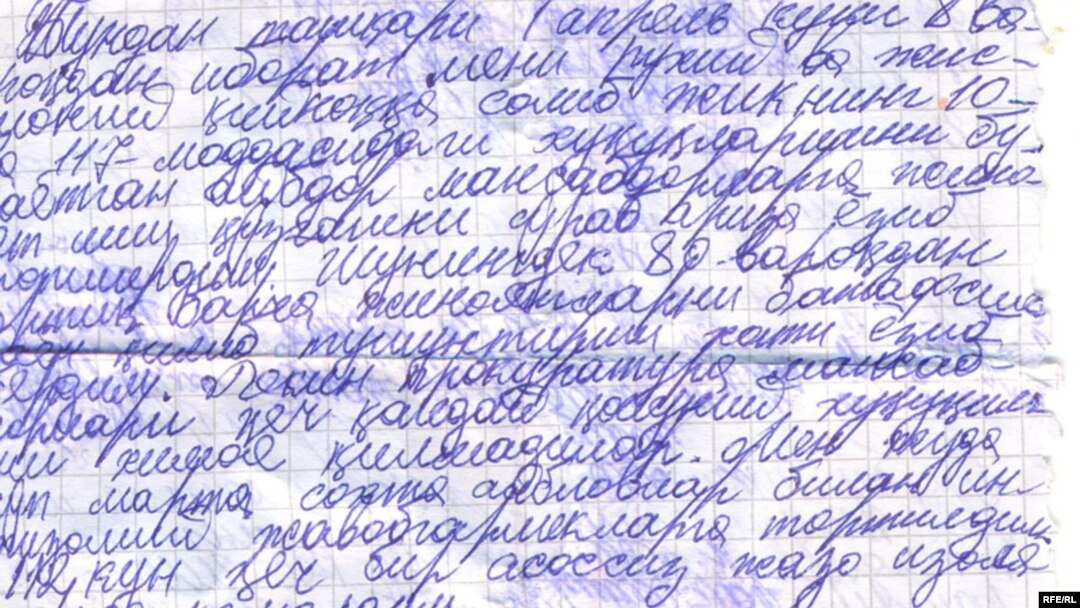 Бундан ташқари 1 апрель куни 8 ва-
роқдан иборат мени руҳий ва жис-
моний қийноққа солиб жикнинг 10-
117-моддасидаги хуқуқларимни бу-
аётган айбдор мансабдорларга нисба-
иш қузғашни сураб ариза ёзиб
Шунингдек 80-вароқдан
ортиқ барча жиноятларни батафсил
қилиб тушунтириш хати ёзиб
бердим. Лекин прокуратура мансаб-
дорлари ҳеч қандай қонуний хуқуқим-
ни химоя қилмадилар. Мен жуда
марта сохта айбловлар билан ин
тизомий жавобгарликларга тортилдим.
112 кун ҳеч бир асоссиз жазо изоля
RFE/RL